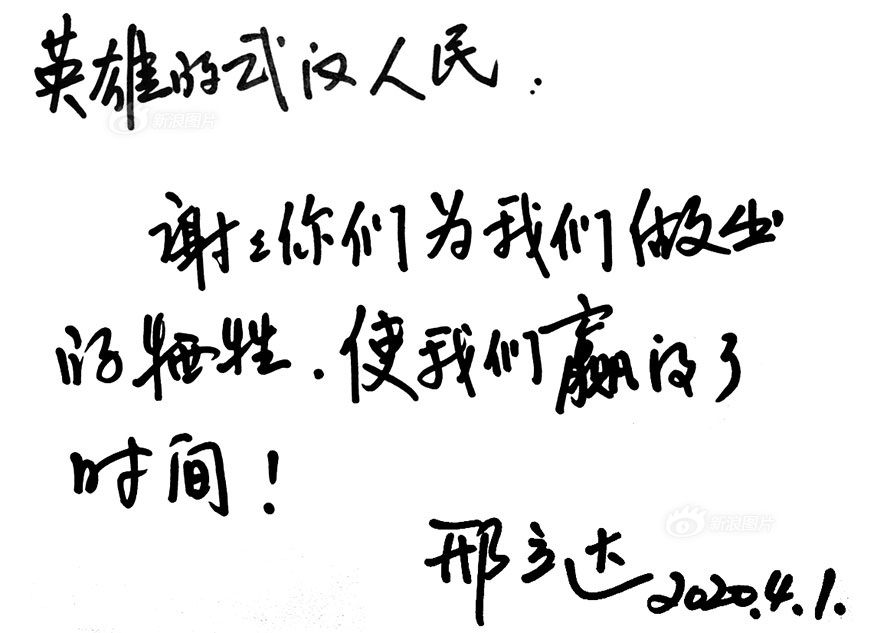 英雄的武汉人民：
谢谢你们为我们做出
的牺牲．使我们赢得了
时间！
邢立达 2020.4.1.
新浪图片
新浪图片